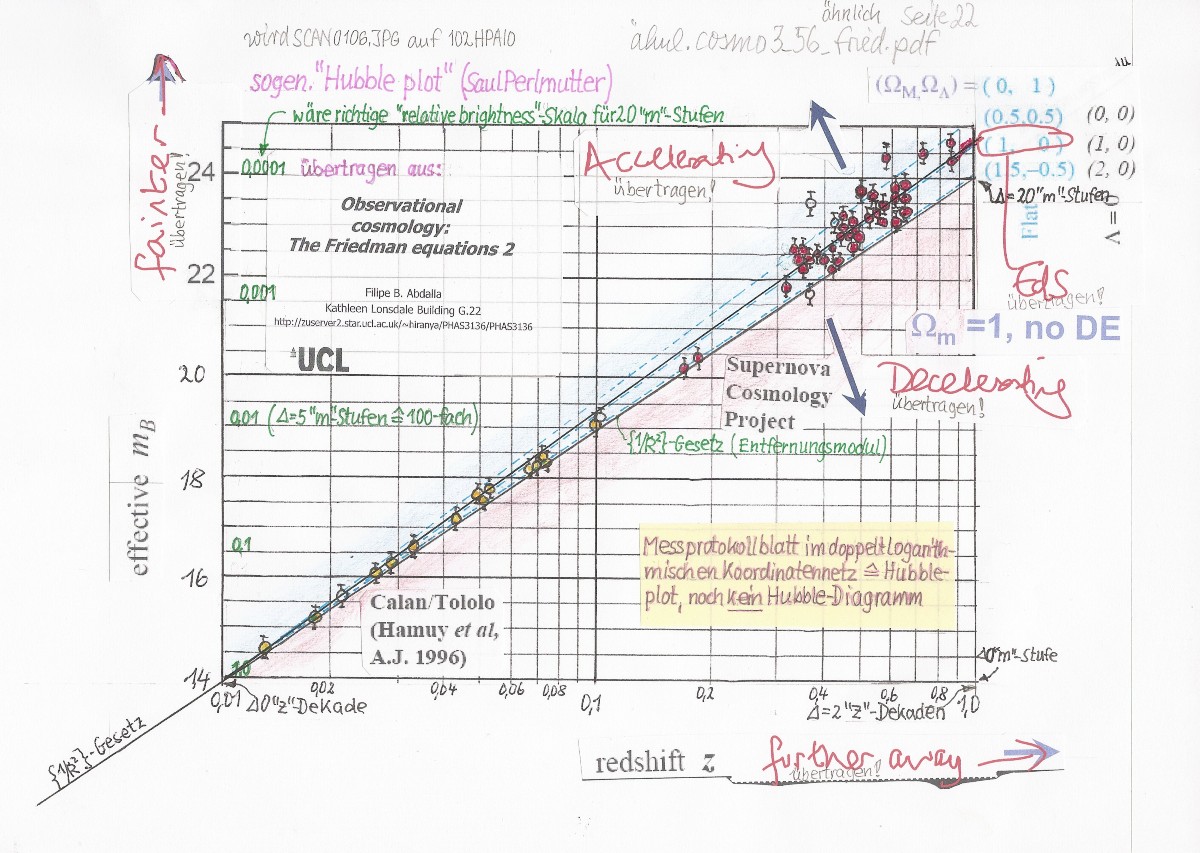 ähnlich Seite 22
wird SCAN0106.JPG auf 102HPAIO
ähnl. cosmo3_56_fried.pdf
sogen. "Hubble plot" (Saul Perlmutter)
(ΩM,ΩΛ) = ( 0, 1 )
(0.5,0.5) (0, 0)
( 1, 0 ) (1, 0)
(1.5,–0.5) (2, 0)
wäre richtige "relative brightness"-Skala für 20 "m"-Stufen
fainter
übertragen!
24
0,0001
übertragen aus:
Accelerating
übertragen!
Δ=20"m"-Stufen
Flat
Λ = 0
Observational
cosmology:
The Friedman equations 2
22
0,001
Filipe B. Abdalla
Kathleen Lonsdale Building G.22
http://zuserver2.star.ucl.ac.uk/~hiranya/PHAS3136/PHAS3136
UCL
EdS
übertragen!
Ωm =1, no DE
20
Supernova
Cosmology
Project
Decelerating
übertragen!
0,01 (Δ=5"m"-Stufen ≙ 100-fach)
{1/R²}-Gesetz (Entfernungsmodul)
effective mB
18
0,1
Messprotokollblatt im doppeltlogarith-
mischen Koordinatennetz ≙ Hubble-
plot, noch kein Hubble-Diagramm
16
Calan/Tololo
(Hamuy et al,
A.J. 1996)
1,0
Δ0"m"-Stufe
14
0,01 0,02 0,04 0,06 0,08 0,1 0,2 0,4 0,6 0,8 1,0
Δ0"z"-Dekade
Δ=2"z"-Dekaden
{1/R²}-Gesetz
redshift z
further away
übertragen!